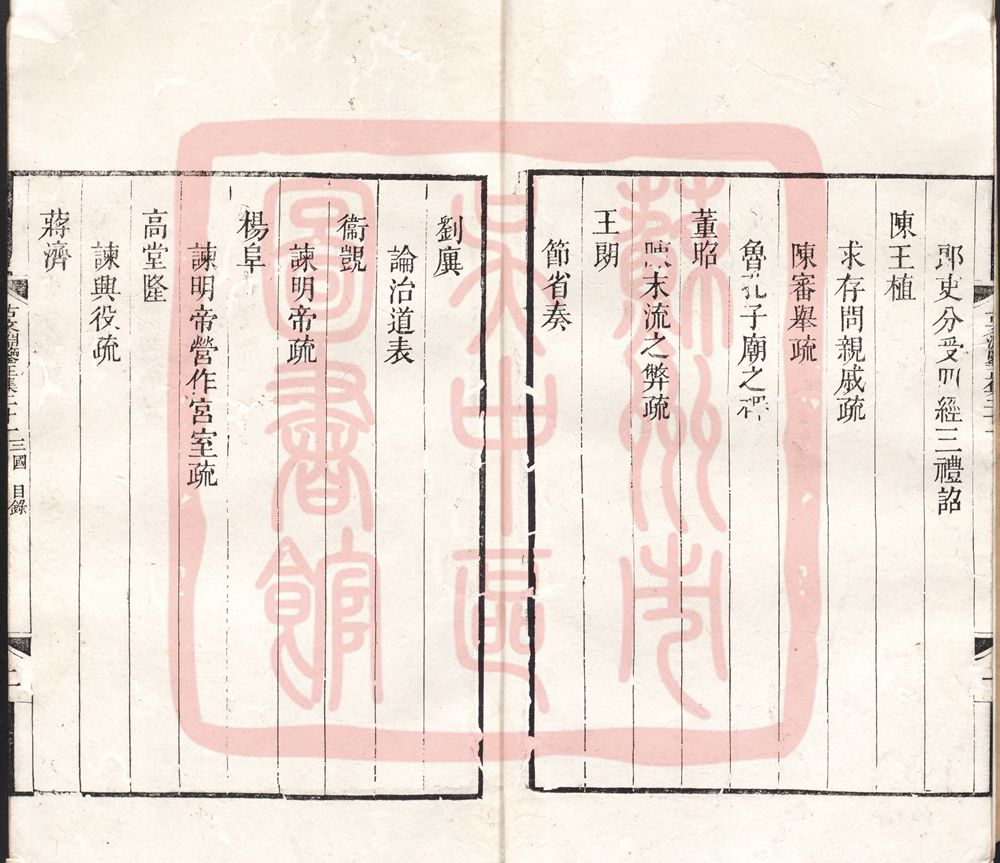 郎吏分受四經三禮詔
陳王植
求存問親戚疏
陳審舉疏
魯孔子廟之碑
董昭
陳末流之弊疏
王朗
節省奏
劉廙
論治道表
衞覬
諫明帝疏
楊阜
諫明帝營作宮室疏
高堂隆
諫興役疏
蔣濟
古文淵鑒正集二十二 三國 目錄
蘇州市
吳中區
圖書館